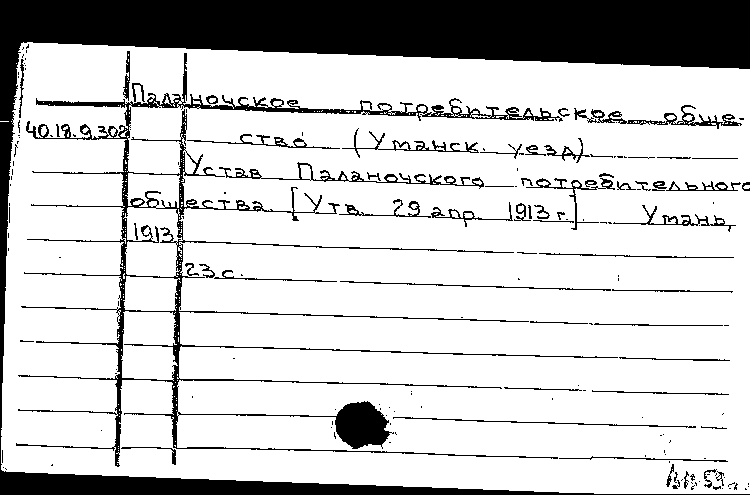 Паланочское потребительское обще-
40.18.9.302 ство (Уманск. уезд)
Устав Паланочского потребительного
общества [Утв. 29 апр. 1913 г.] Умань,
1913
23 с.